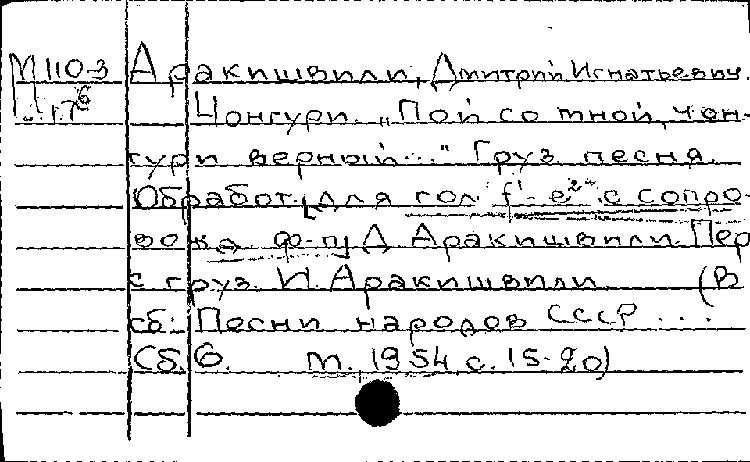 М 110-3 Аракишвили, Дмитрий Игнатьевич.
Ц.т.7⁶ Чонгури. „Пой со мной, чон-
гури верный..." Груз. песня.
Обработ. [для гол. f'-e²" с сопро-
вожд. ф-п] Д. Аракишвили. Пер.
с груз. И. Аракишвили. (В
сб.: Песни народов СССР...
Сб. 6. М. 1954 с. 15-20)